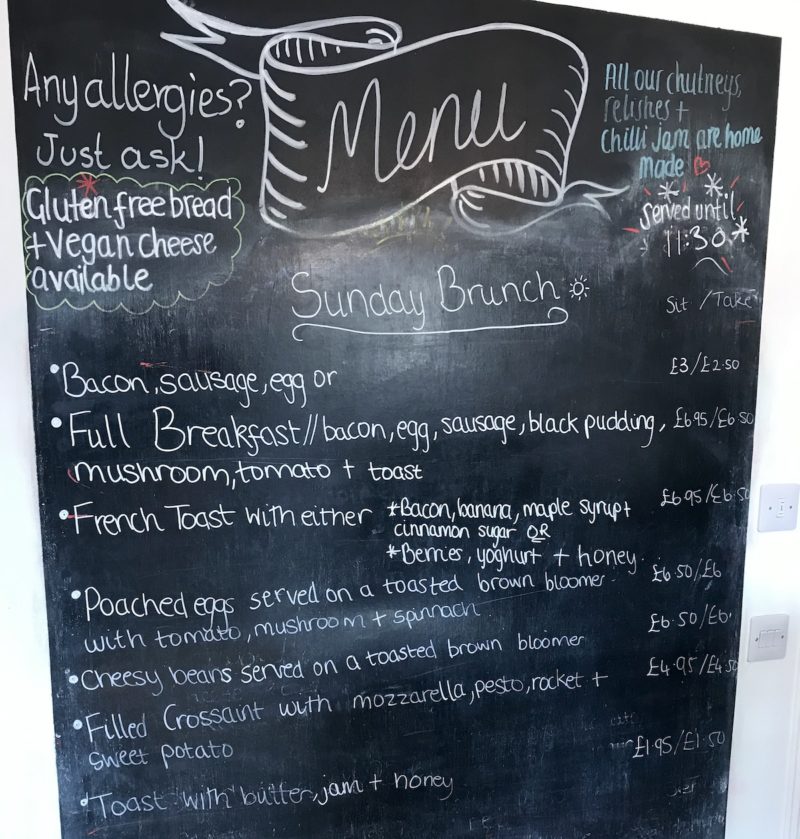 Menu
Any allergies?
Just ask!
Gluten free bread
+ Vegan cheese
available
All our chutneys,
relishes +
chilli jam are home
made
Served until
11:30
Sunday Brunch
Sit / Take
Bacon, sausage, egg or £3/£2.50
Full Breakfast // bacon, egg, sausage, black pudding, £6.95/£6.50
mushroom, tomato + toast
French Toast with either *Bacon, banana, maple syrup + £6.95/£6.50
cinnamon sugar OR
*Berries, yoghurt + honey.
Poached eggs served on a toasted brown bloomer £6.50/£6
with tomato, mushroom + spinnach
Cheesy beans served on a toasted brown bloomer £6.50/£6
Filled Crossaint with mozzarella, pesto, rocket + £4.95/£4.50
sweet potato
Toast with butter, jam + honey £1.95/£1.50